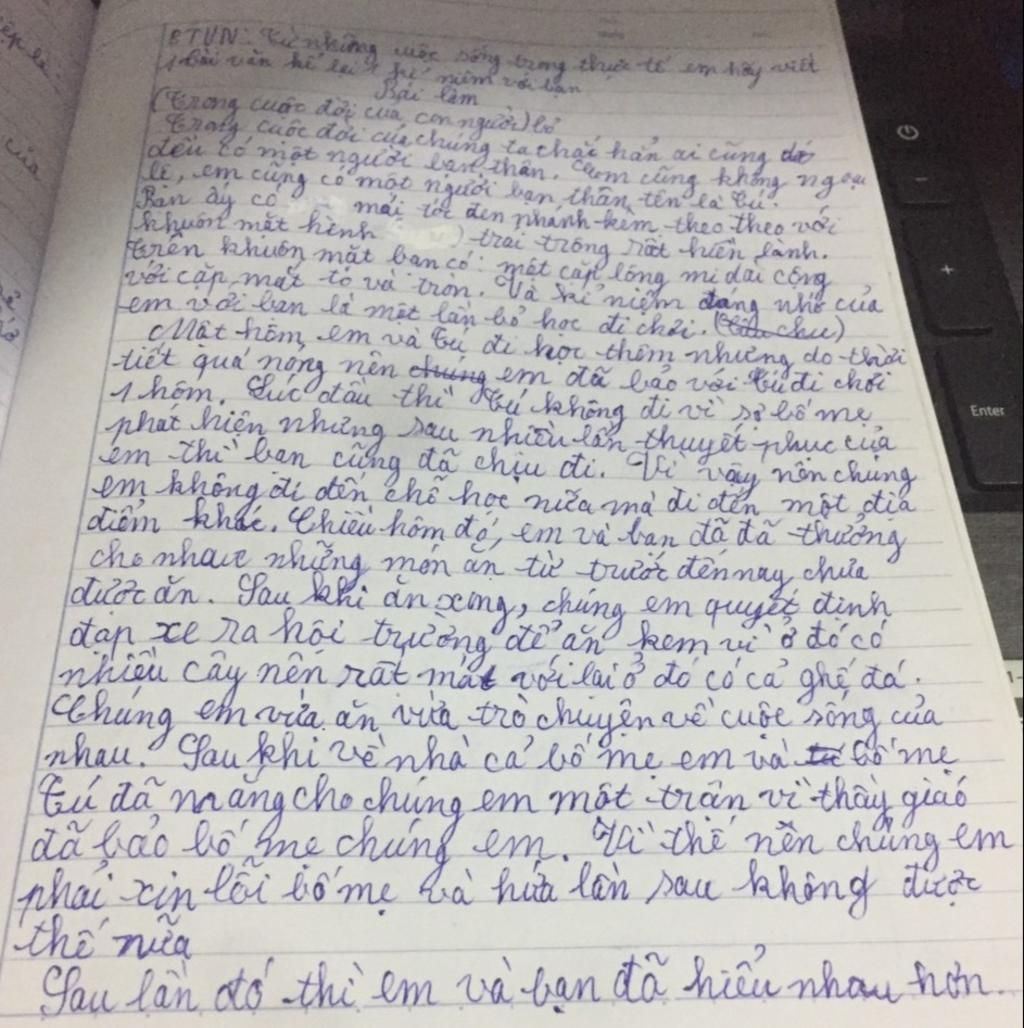 BTVN: Từ những cuộc sống trong thực tế em hãy viết
1 bài văn kể lại 1 kỉ niệm với bạn
Bài làm
(Trong cuộc đời của con người) bỏ
Trong cuộc đời của chúng ta chắc hẳn ai cũng
đều có một người bạn thân. Em cũng không ngoại
lệ, em cũng có một người bạn thân tên là Tú.
Bạn ấy có mái tóc đen nhánh kèm theo theo với
khuôn mặt hình ) trái trông rất hiền lành.
Trên khuôn mặt bạn có: một cặp lông mi dài cộng
với cặp mắt to và tròn. Và kỉ niệm đáng nhớ của
em với bạn là một lần bỏ học đi chơi.
Một hôm, em và Tú đi học thêm nhưng do thời
tiết quá nóng nên chúng em đã bảo với Tú đi chơi
1 hôm. Lúc đầu thì Tú không đi vì sợ bố mẹ
phát hiện nhưng sau nhiều lần thuyết phục của
em thì bạn cũng đã chịu đi. Vì vậy nên chúng
em không đi đến chỗ học nữa mà đi đến một địa
điểm khác. Chiều hôm đó, em và bạn đã đã thưởng
cho nhau những món ăn từ trước đến nay chưa
được ăn. Sau khi ăn xong, chúng em quyết định
đạp xe ra hội trường để ăn kem vì ở đó có
nhiều cây nên rất mát với lại ở đó có cả ghế đá.
Chúng em vừa ăn vừa trò chuyện về cuộc sống của
nhau. Sau khi về nhà cả bố mẹ em và bố mẹ
Tú đã mắng cho chúng em một trận vì thầy giáo
đã bảo bố mẹ chúng em. Vì thế nên chúng em
phải xin lỗi bố mẹ và hứa lần sau không được
thế nữa
Sau lần đó thì em và bạn đã hiểu nhau hơn.
Enter